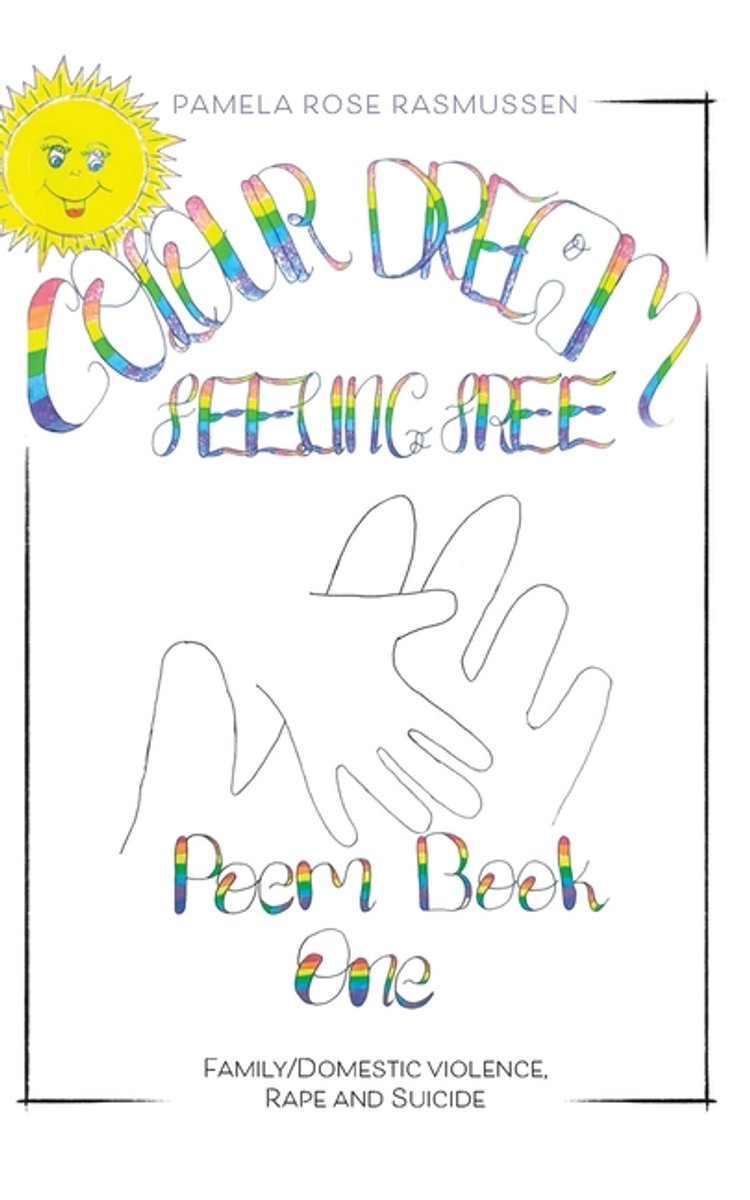 PAMELA ROSE RASMUSSEN
COLOUR DREAM
FEELING FREE
Poem Book
One
FAMILY/DOMESTIC VIOLENCE,
RAPE AND SUICIDE